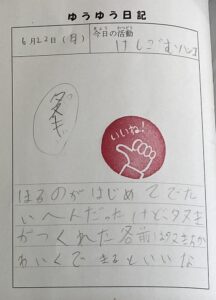 ゆうゆう日記
6月22日(月)
きょう かつどう
今日の活動
けしごむハンコ
タヌキ
いいね!
ほるのがはじめてでたい
へんだったけど、タヌキ
がつくれた名前は
かわいくできるといいな